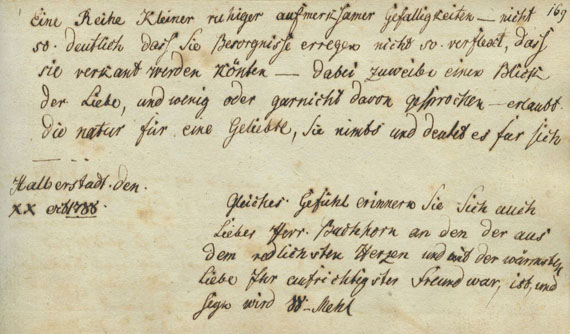 169
Eine Reihe Kleiner ruhiger aufmerksamer Gefälligkeiten — nicht
so deutlich dass sie Besorgnisse erregen nicht so verstekt, dass
sie verkant werden könten — dabei zuweile einen Blick
der Liebe, und wenig oder garnicht davon gesprochen — erlaubt
die natur für eine Geliebte, sie nimts und deutet es für sich
Halberstadt. den.
XX
gleiches Gefühl erinnern Sie Sich auch
Lieber Herr. Buchhorn an den der aus
dem redlichsten Herzen und mit der wärmsten
Liebe Ihr aufrichtigster Freund war, ist, und
seyn wird W. Mehl